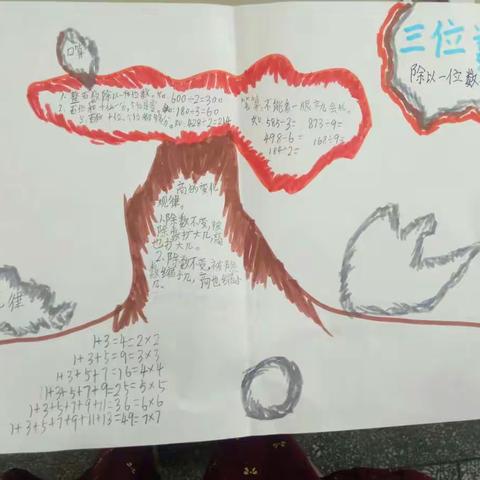 三位
除以一位数
口算
1、整百数除以一位数。如 600÷2=300
如:180÷3=60
如:428÷2=214
笔算,不能看一眼就
如 585÷3= 873÷9=
498÷6= 168÷9=
184÷2=
商的变化
规律。
1、除数不变,被
除数扩大几,商
也扩大几。
2、除数不变,被除
数缩小几,商也缩小
几。
律
1+3=4=2×2
1+3+5=9=3×3
1+3+5+7=16=4×4
1+3+5+7+9=25=5×5
1+3+5+7+9+11=36=6×6
1+3+5+7+9+11+13=49=7×7